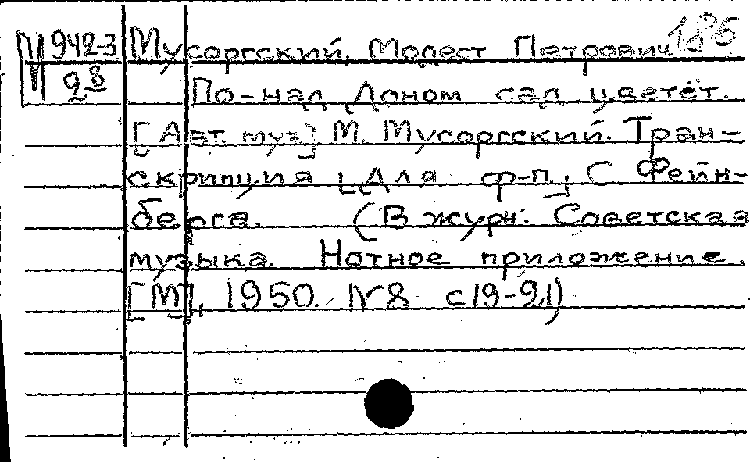 М 942-3 Мусоргский, Модест Петрович 185
М 28 По-над Доном сад цветёт.
[Авт. муз.] М. Мусоргский. Тран-
скрипция [для ф-п.] С Фейн-
берга. (В журн. Советская
музыка. Нотное приложение.
[М], 1950. №8 с 19-21)